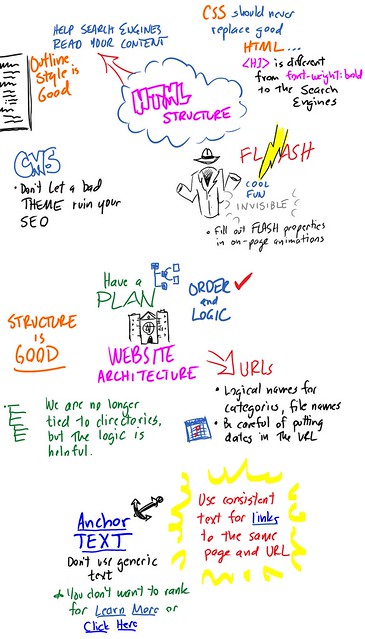 HELP SEARCH ENGINES
READ YOUR CONTENT
CSS should never
replace good
HTML...
<H1> is different
from font-weight:bold
to the Search
Engines
Outline
Style is
Good
HTML
STRUCTURE
CMS
• Don't let a bad
THEME ruin your
SEO
FLASH
COOL
FUN
INVISIBLE
• Fill out FLASH properties
in on-page animations
Have a
PLAN
ORDER
and
LOGIC
STRUCTURE
is
GOOD
WEBSITE
ARCHITECTURE
URLs
• Logical names for
categories, file names
• Be careful of putting
dates in the URL
• We are no longer
tied to directories,
but the logic is
helpful.
Anchor
TEXT
Don't use generic
text
You don't want to rank
for Learn More or
Click Here
Use consistent
text for links
to the same
page and URL